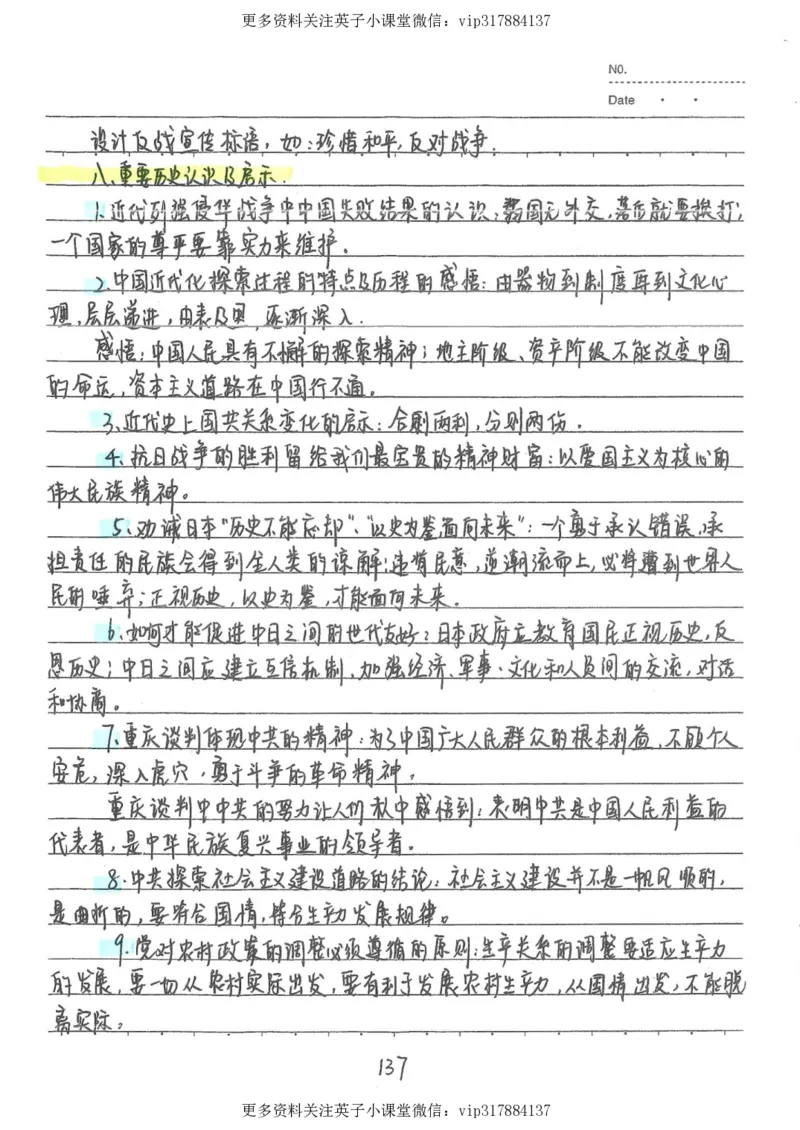 更多资料关注英子小课堂微信：vip317884137
NO.
Date
设计反战宣传标语，如：珍惜和平，反对战争。
八、重要历史认识及启示.
1.近代列强侵华战争中中国失败结果的认识：弱国无外交，落后就要挨打；
一个国家的尊严要靠实力来维护.
2.中国近代化探索过程的特点及历程的感悟：由器物到制度再到文化心
理，层层递进，由表及里，逐渐深入.
感悟：中国人民具有不懈的探索精神；地主阶级、资产阶级不能改变中国
的命运，资本主义道路在中国行不通。
3、近代史上国共关系变化的启示：合则两利，分则两伤.
4、抗日战争的胜利留给我们最宝贵的精神财富：以爱国主义为核心的
伟大民族精神。
5、劝诫日本“历史不能忘却”、“以史为鉴面向未来”：一个勇于承认错误，承
担责任的民族会得到全人类的谅解；违背民意，逆潮流而上，必将遭到世界人
民的唾弃；正视历史，以史为鉴，才能面向未来.
6、如何才能促进中日之间的世代友好：日本政府应教育国民正视历史，反
思历史；中日之间应建立互信机制，加强经济、军事、文化和人员间的交流，对话
和协商。
7、重庆谈判体现中共的精神：为了中国广大人民群众的根本利益，不顾个人
安危，深入虎穴，勇于斗争的革命精神。
重庆谈判中中共的努力让人们从中感悟到：表明中共是中国人民利益的
代表者，是中华民族复兴事业的领导者。
8.中共探索社会主义建设道路的结论：社会主义建设并不是一帆风顺的，
是曲折的，要符合国情，符合生产力发展规律。
9.党对农村政策的调整必须遵循的原则：生产关系的调整要适应生产力
的发展，要一切从农村实际出发，要有利于发展农村生产力，从国情出发，不能脱
离实际。
137
更多资料关注英子小课堂微信：vip317884137